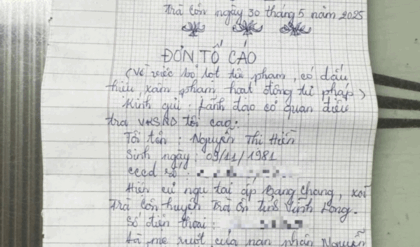 Trà Côn ngày 30 tháng 5 năm 2025
ĐƠN TỐ CÁO
(Về việc bỏ lọt tội phạm, có dấu
hiệu xâm phạm hoạt động tư pháp)
Kính gửi: Lãnh đạo cơ quan điều
tra VKSND tối cao.
Tôi tên: Nguyễn Thị Hiền
Sinh ngày: 09/11/1981
CCCD số:
Hiện cư ngụ tại ấp Bang Chang, xã
Trà Côn huyện Trà Ôn tỉnh Vĩnh Long.
Số điện thoại:
là mẹ ruột của nạn nhân Nguyễn